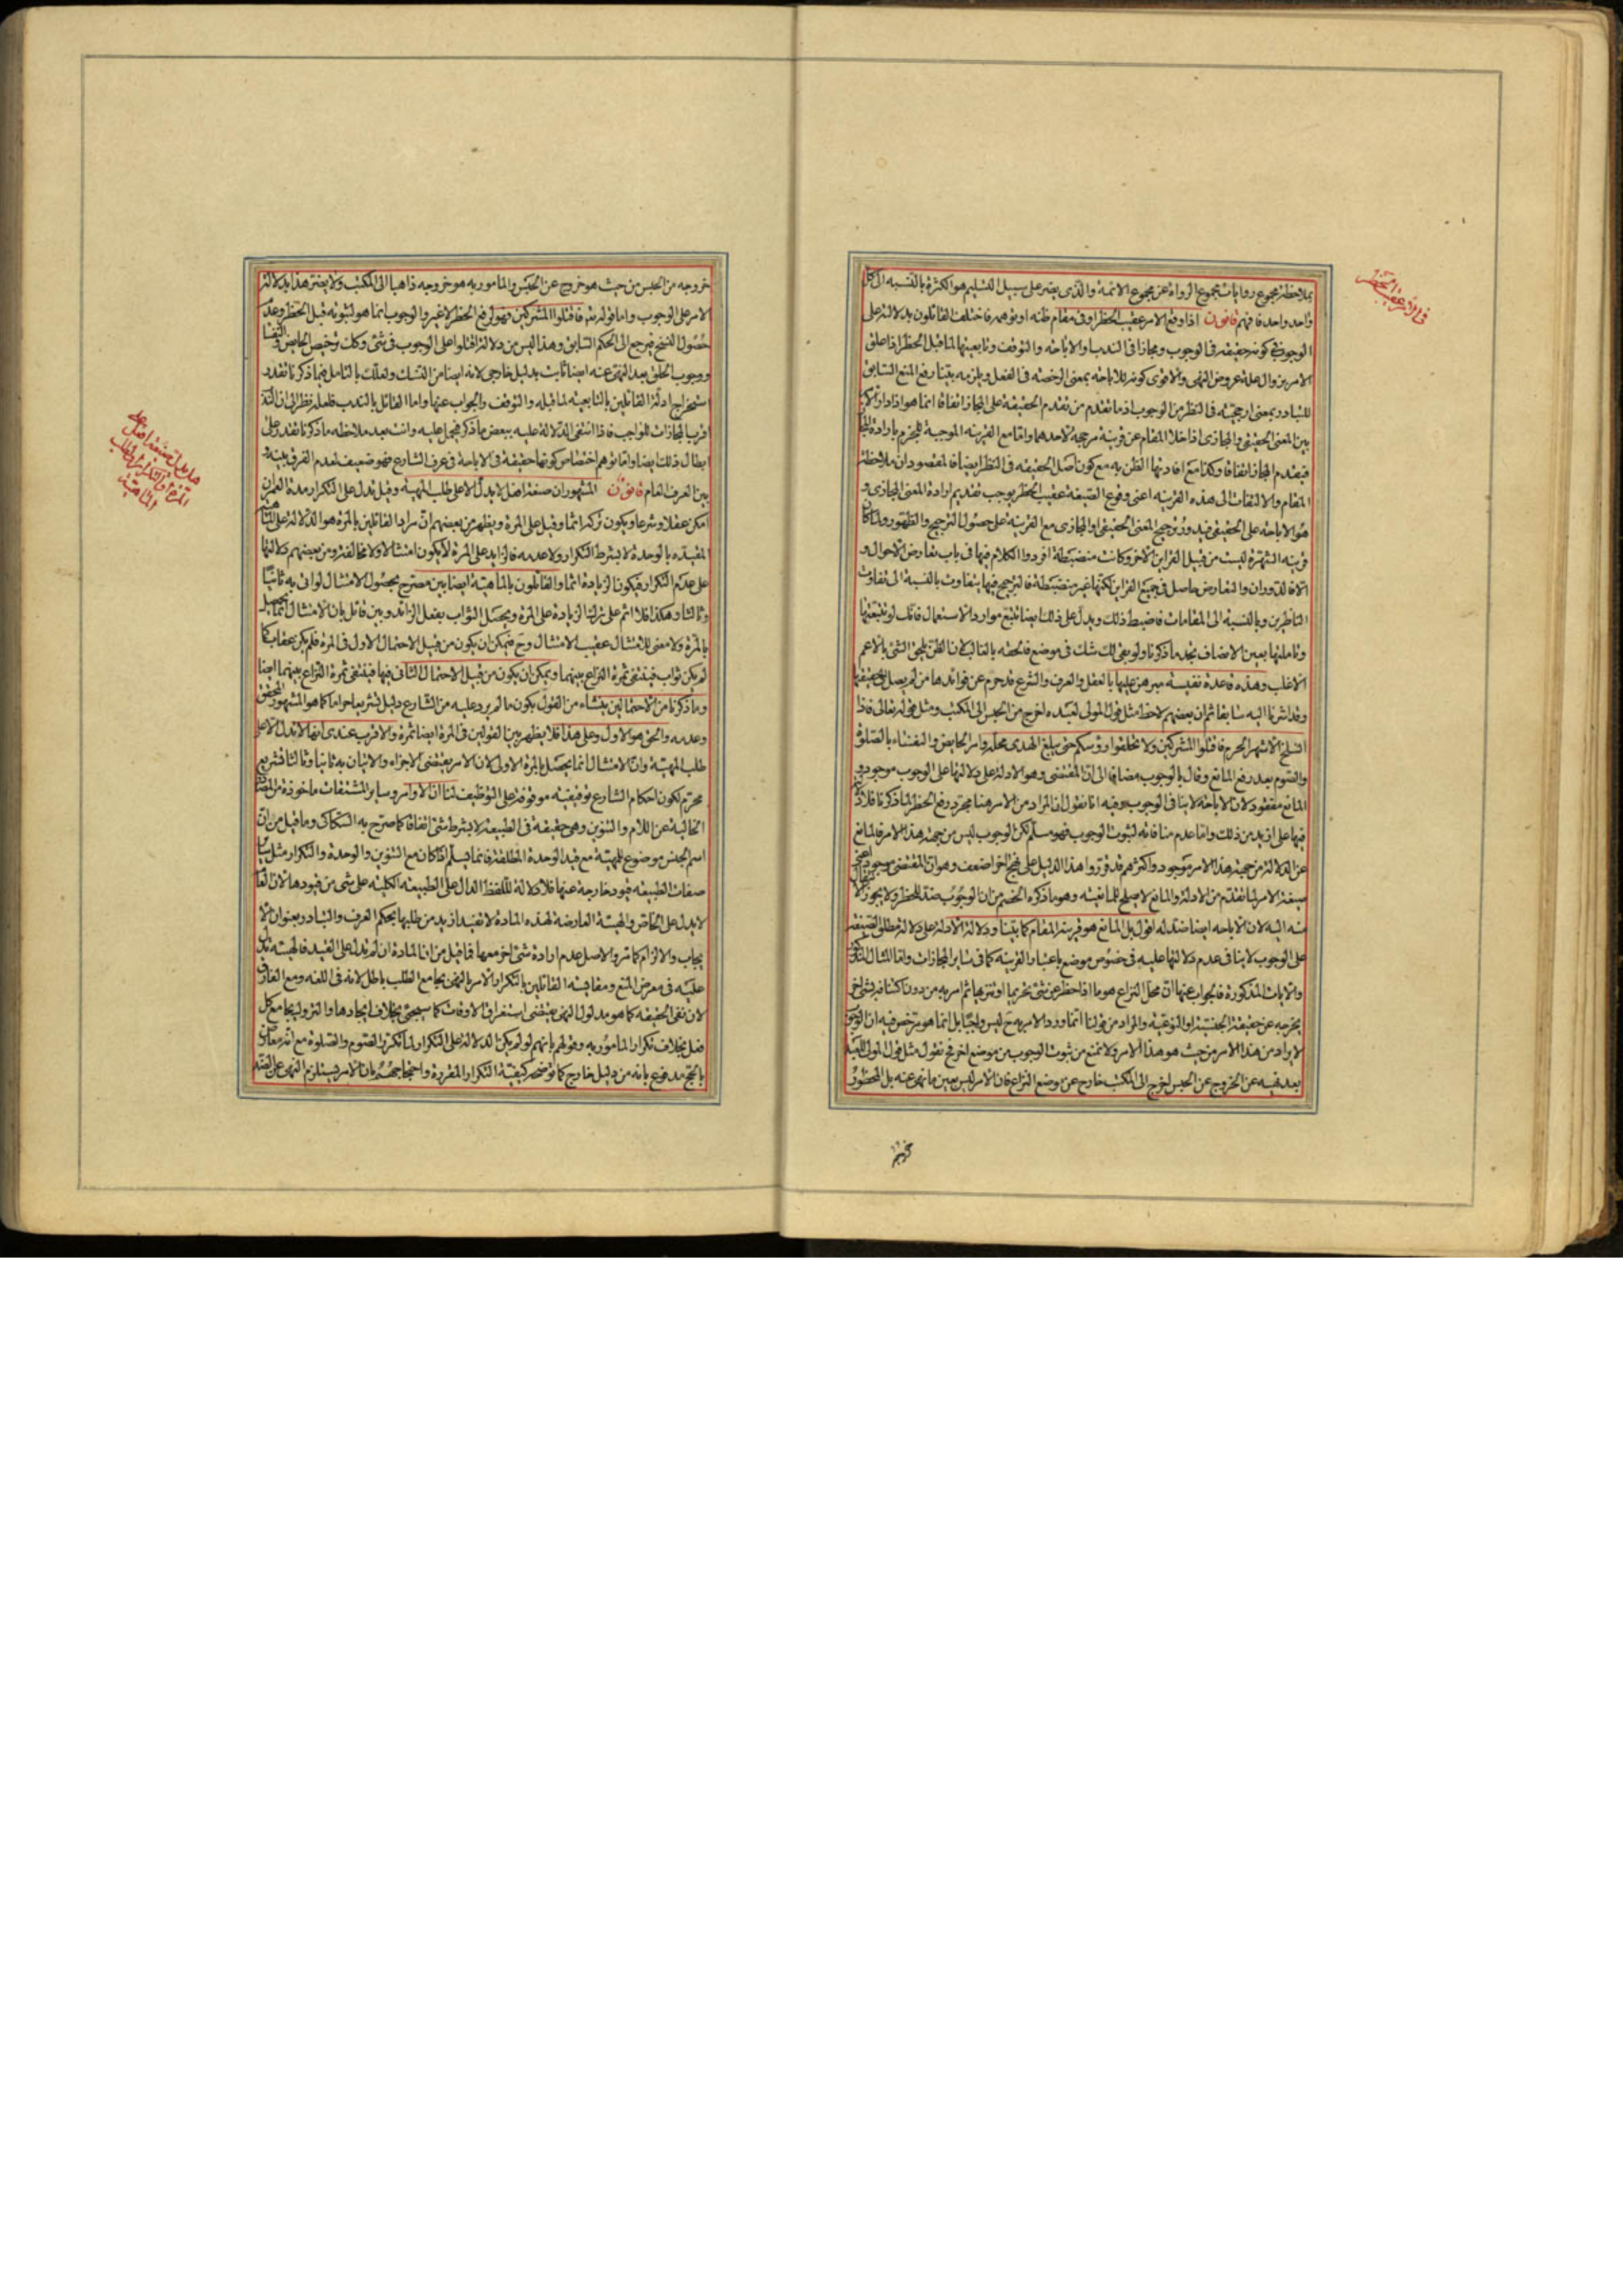 بملاحظة مجموع روايات مجموع الرواة عن مجموع الائمة والذى يضر على سبيل التسليم هو الكثرة بالنسبه الى كل
واحد واحد فافهم قانون اذا وقع الامر عقيب الحظر او فى مقام ظنه او توهمه فاختلف القائلون بدلالته على
الوجوب فى كونه حقيقه فى الوجوب ومجازا فى الندب او الاباحه والتوقف وتابعيتها لما قبل الحظر اذا علق
الامر بزوال علة عروض النهى والاقوى كونه للاباحه بمعنى الرخصه فى الفعل ويلزمه بينا رفع المنع السابق
للتبادر وبمعنى ارجحيته فى النظر من الوجوب اذ ما تقدم من تقدم الحقيقة على المجاز اتفاقا انما هو اذا دار الامر
بين المعنى الحقيقى والمجازى اذا خلا المقام عن قرينة مرجحه لاحدهما واما مع القرينه الموجبة للجزم بارادة المجاز
فيقدم المجاز اتفاقا وكذا مع افادتها الظن به مع كون اصل الحقيقه فى النظر ايضا فالمقصود ان ملاحظة
المقام والالتفات الى هذه القرينه اعنى وقوع الصيغة عقيب الحظر يوجب تقديم ارادة المعنى المجازى و
هو الاباحه على الحقيقى فيدور ترجيح المعنى الحقيقى او المجازى مع القرينه على حصول الترجيح والظهور ولما كان
قرينه الشهرة ليست من قبيل القراين الاخر وكانت منضبطة افردوا الكلام فيها فى باب تعارض الاحوال و
الا فالدوران والتعارض حاصل فى جميع القراين لكنها غير منضبطة فالترجيح فيها يتفاوت بالنسبة الى تفاوت
الناظرين وبالنسبة الى المقامات فاضبط ذلك ويدل على ذلك ايضا تتبع موارد الاستعمال فانك لو تتبعتها
وتاملتها بعين الانصاف تجد ما ذكرنا ولو بقى لك شك فى موضع فالحقه بالغالب لان الظن يلحق الشئ بالاعم
الاغلب وهذه قاعدة نفيسة مبرهن عليها بالعقل والعرف والشرع قد حرم عن فوائدها من لم يصل الى حقيقتها
وقد اشرنا اليه سابقا ثم ان بعضهم لاحظ مثل قول المولى لعبده اخرج من الحبس الى المكتب ومثل قوله تعالى فاذا
انسلخ الاشهر الحرم فاقتلوا المشركين ولا تحلقوا رؤسكم حتى يبلغ الهدى محله وامر الحايض والنفساء بالصلوة
والصوم بعد رفع المانع وقال بالوجوب مضافا الى ان المقتضى وهو الادلة على دلالتها على الوجوب موجود و
المانع مفقود لان الاباحه لا ينافى الوجوب وفيه انا نقول ان المراد من الامر هنا مجرد رفع الحظر لما ذكرنا فلا دلالة
فيها على ازيد من ذلك واما عدم منافاته لثبوت الوجوب فهو مسلم لكن الوجوب ليس من جهة هذا الامر فالمانع
عن الدلالة من جهة هذا الامر موجود واكثرهم قد قرروا هذا الدليل على نهج اخر اضعف وهو ان المقتضى موجود اعنى
صيغة الامر لما تقدم من الادله والمانع لا يصلح للمانعيه وهو ما ذكره الخصم من ان الوجوب ضد للحظر ولا يجوز الانتقال
منه اليه لان الاباحه ايضا ضد له اقول بل المانع هو قرينه المقام كما بينا ودلالة الادلة على دلالة مطلق الصيغة
على الوجوب لا ينافى عدم دلالتها عليه فى خصوص موضع باعتبار القرينه كما فى ساير المجازات واما المثال المذكور
والايات المذكورة فالجواب عنها ان محل النزاع هو ما اذا حظر عن شئ تحريما او تنزيها ثم امر به من دون اكتنافه بشئ اخر
يخرجه عن حقيقته الجنسية او النوعيه والمراد من قولنا انما ورد الامر به ح ليس واجبا بل انما هو مرخص فيه ان الوجوب
لا يراد من هذا الامر من حيث هو هذا الامر ولا نمنع من ثبوت الوجوب من موضع اخر فح نقول مثل قول المولى للعبد
بعد نهيه عن الخروج عن الحبس اخرج الى المكتب خارج عن موضع النزاع فان الامر ليس بعين ما نهى عنه بل المحظور
خروجه من الحبس من حيث هو خروج عن الحبس والمامور به هو خروجه ذاهبا الى المكتب ولا يضر هذا بدلالة
الامر على الوجوب واما قوله تعالى فاقتلوا المشركين فهو لرفع الحظر لا غير والوجوب انما هو لثبوته قبل الحظر وعدم
حصول النسخ فيرجع الى الحكم السابق وهذا ليس من دلالة اقتلوا على الوجوب فى شئ وكذلك ترخيص الحايض والنفساء
ووجوب الحلق بعد النهى عنه ايضا ثابت بدليل خارجى لانه ايضا من النسك ولعلك بالتامل فيما ذكرنا تقدر
استخراج ادلة القائلين بالتابعيه لما قبله والتوقف والجواب عنها واما القائل بالندب فلعله نظر الى ان الندب
اقرب المجازات للواجب فاذا انتفى الدلالة عليه ببعض ما ذكر فيحمل عليه وانت بعد ملاحظه ما ذكرنا تقدر على
ابطال ذلك ايضا واما توهم اختصاص كونها حقيقة فى الاباحة فى عرف الشارع فهو ضعيف لعدم الفرق بينه و
بين العرف العام قانون المشهور ان صيغة افعل لا يدل الا على طلب المهية وقيل تدل على التكرار مدة العمر ان
امكن عقلا وشرعا ويكون تركه اثما وقيل على المرة ويظهر من بعضهم ان مراد القائلين بالمرة هو الدلالة على المهية
المقيده بالوحدة لا بشرط التكرار ولا عدمه فالزايد على المرة لا يكون امتثالا ولا مخالفة ومن بعضهم دلالتها
على عدم التكرار فيكون الزيادة اثما والقائلون بالماهية ايضا بين مصرح بحصول الامتثال لو اتى به ثانيا
وثالثا وهكذا فلا اثم على ترك الزيادة على المرة ويحصل الثواب بفعل الزائد وبين قائل بان الامتثال انما يحصل
بالمرة ولا معنى للامتثال عقيب الامتثال وح فيمكن ان يكون من قبيل الاحتمال الاول فى المرة فلم يكن عقاب كما
لم يكن ثواب فينتفى ثمرة النزاع بينهما ويمكن ان يكون من قبيل الاحتمال الثانى فيها فينتفى ثمرة النزاع بينهما ايضا
وما ذكرنا من الاحتمالين ينشاء من القول بكون ما لم يرد عليه من الشارع دليل تشريعا حراما كما هو المشهور المحقق
وعدمه والحق هو الاول وعلى هذا فلا يظهر بين القولين فى المرة ايضا ثمرة والاقرب عندى انها لا تدل الا على
طلب المهية وان الامتثال انما يحصل بالمرة الاولى لان الامر يقتضى الاجزاء والاتيان به ثانيا وثالثا تشريع
محرم لكون احكام الشارع توقيفيه موقوفة على التوظيف لنا ان الاوامر وساير المشتقات ماخوذة من المصادر
الخالية عن اللام والتنوين وهى حقيقة فى الطبيعة لا بشرط شئ اتفاقا كما صرح به السكاكى وما قيل من ان
اسم الجنس موضوع للمهية مع قيد الوحدة المطلقة فانما يسلم اذا كان مع التنوين والوحدة والتكرار مثل ساير
صفات الطبيعه قيود خارجة عنها فلا دلالة للفظ الدال على الطبيعه الكليه على شئ من قيودها لان العام
لا يدل على الخاص والهيئة العارضة لهذه المادة لا تفيد ازيد من طلبها بحكم العرف والتبادر بعنوان الا
يجاب والالزام كما مر والاصل عدم ارادة شئ اخر معها فما قيل من ان المادة ان لم تدل على القيد فالهيئة تدل
عليه فى معرض المنع ومقايسه القائلين بالتكرار الامر بالنهى بجامع الطلب باطل لانه فى اللغه ومع الفارق
لان نفى الحقيقه كما هو مدلول النهى يقتضى استغراق الاوقات كما سيجئ بخلاف ايجادها والتروك يجامع كل
فعل بخلاف تكرار المامور به وقولهم بانهم لو لم يكن الدلالة على التكرار لما تكرر الصوم والصلوة مع انه معارض
بالحج مدفوع بانه من دليل خارج كما توضحه كيفية التكرار المقررة واحتجاجهم بان الامر يستلزم النهى عن الضد
فى الامر عقيب الحظر
هل يدل صيغة افعل على
المرة او التكرار او لطلب
الماهية
خروجه